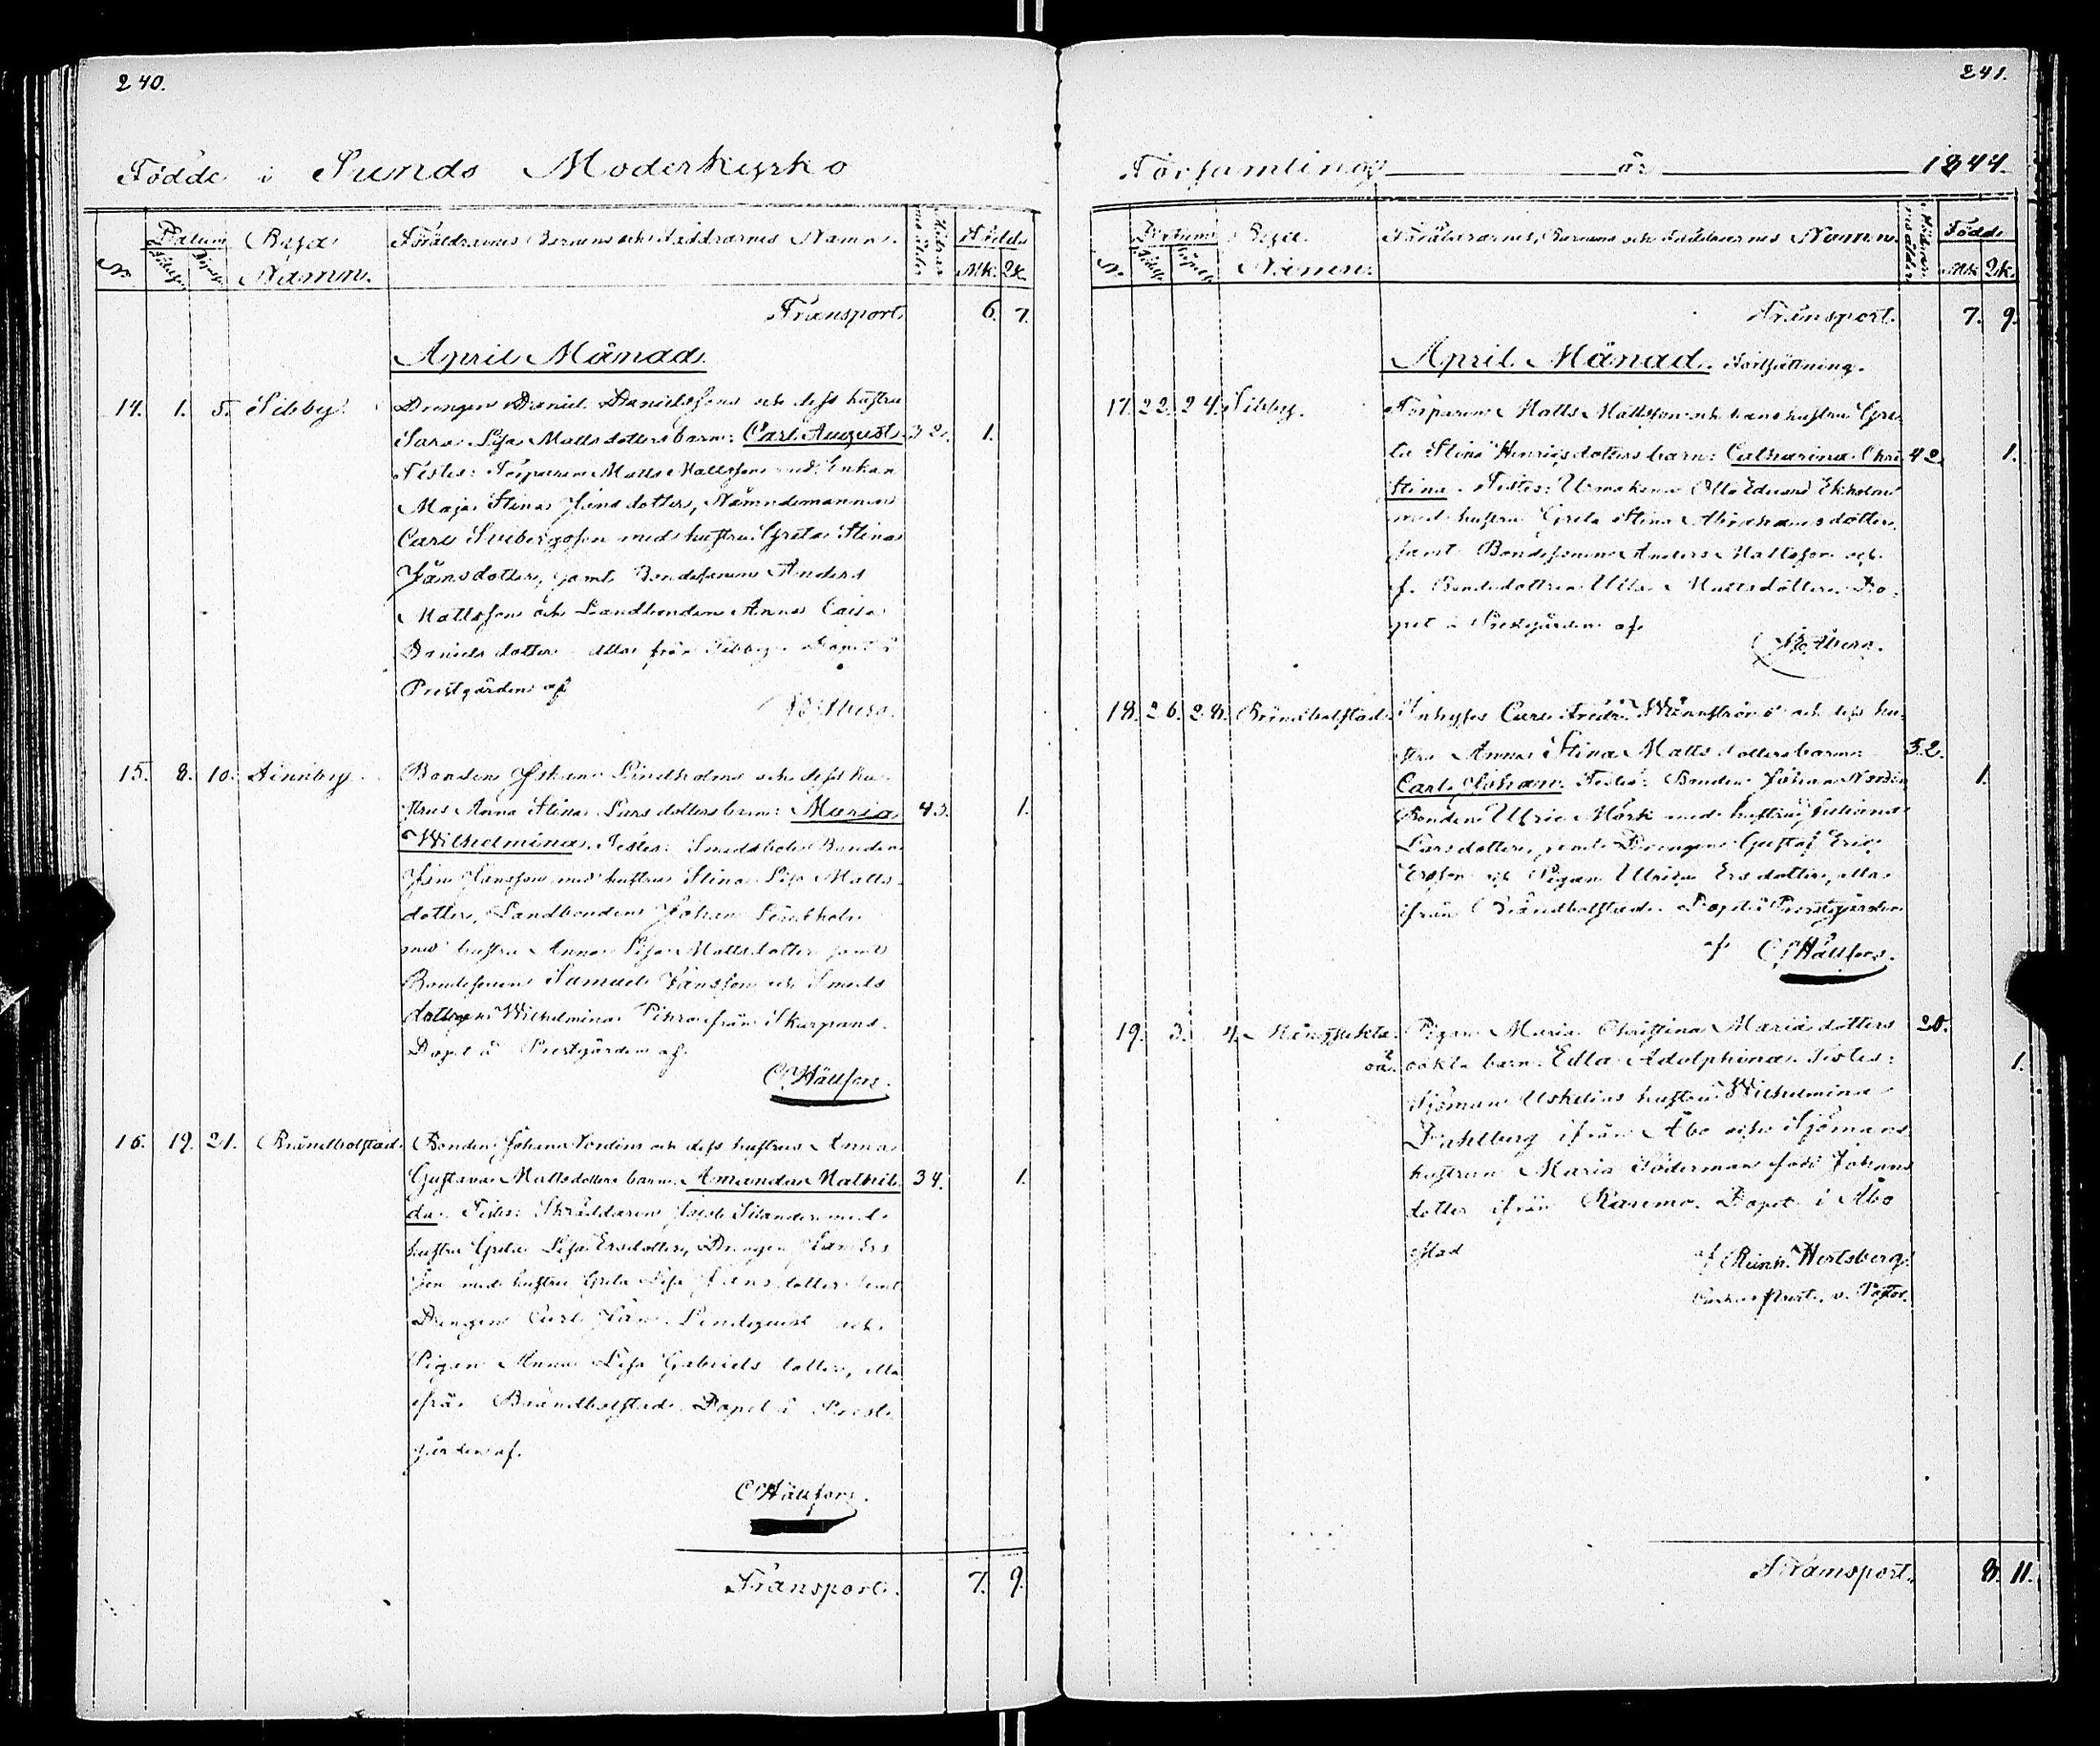 240.
Födde i Sunds Moderkyrko
No
Datum
Födelse
Döpelse
Byga
Namn.
Föräldrarnes Barnens och Faddrarnes Namn.
Modrens ålder
Födde
Mk. Qk.
Transport. 6. 7.
April Månad.
14. 1. 5. Sibby. Drengen Daniel Danielssons och dess hustru
Sara Lisa Mattsdotters barn: Carl August. 32. 1.
Testes: Torparen Matts Mattsson med Enkan
Maja Stina Jansdotter, Nämndemannen
Carl Svebergsson med hustru Greta Stina
Jansdotter, samt Bondesonen Anders
Mattsson och Landbonden Anna Caisa
Daniels dotter alla från Sibby. Döpet å
Prestgården af
15. 8. 10. Finnby. Bonden Johan Lindholms och dess hu
strus Anna Stina Lars dotters barn: Maria 43. 1.
Wilhelmina. Testes: Smedsböle Bonden
Jan Jansson med hustru Stina Lisa Matts
dotter, Landbonden Johan
med hustru Anna Lisa Mattsdotter samt
Bondesonen Samuel Jansson och Smeds
dottren Wilhelmina från Skarpans.
Döpet å Prestgården af.
C Hällfors.
16. 19. 21. Brändbolstad. Bonden Johan Nordins och dess hustrus Anna
Gustava Mattsdotters barn. Amanda Mathil 34. 1.
da. Testes: Skräddaren Silander med
hustru Greta Lisa Ersdotter, Drengen Jan Ers
son med hustru Greta Lisa Jansdotter samt
Drengen Carl Jan Lindquist och
Pigan Anna Lisa Gabriels dotter, alla
ifrån Brändbolstad. Döpet å Prest
gården af.
C Hällfors.
Transport. 7. 9.
241.
Församling år 1844.
No
Datum
Födelse
Döpelse
Byga
Namn.
Föräldrarnes, Barnens och Faddrarnes Namn.
Modrens ålder
Födde
Mk. Qk.
Transport. 7. 9.
April Månad. Fortsättning.
17. 22. 24. Sibby. Torparen Matts Mattsson och hans hustru Gre
ta Stina Henricsdotters barn: Catharina Chri 42. 1.
stina. Testes: Urmakaren Otto Eduard Ekholm
med hustru Greta Stina Abrahamsdotter
samt Bondesonen Anders Mattsson och
f. Bondedottren Ulla Mattsdotter. Dö
pet å Prestgården af
18. 26. 28. Brändbolstad. Inhyses Carl Fredr. Wännströms och dess hu
stru Anna Stina Matts dotters barn: 32.
Carl Johan. Testes: Bonden Johan Nordin 1.
Bonden Ulric Mörk med hustru Juliana
Larsdotter, samt Drengen Gustaf Eric
Ersson och Pigan Ulrica Ersdotter, alla
ifrån Brändbolstad. Döpet å Prestgården
af C Hällfors.
19. 3. 4. Pigan Maria Christina Maria dotters 20.
oä. oäkta barn. Edla Adolphina. Testes: 1.
Sjöman Uskelins hustru Wilhelmina
Dahlberg ifrån Åbo och Sjömans
hustrun Maria Söderman född Johans
dotter ifrån Raumo. Döpet i Åbo
stad af Reinh. Hertsberg.
v. Pastor.
Transport. 8. 11.